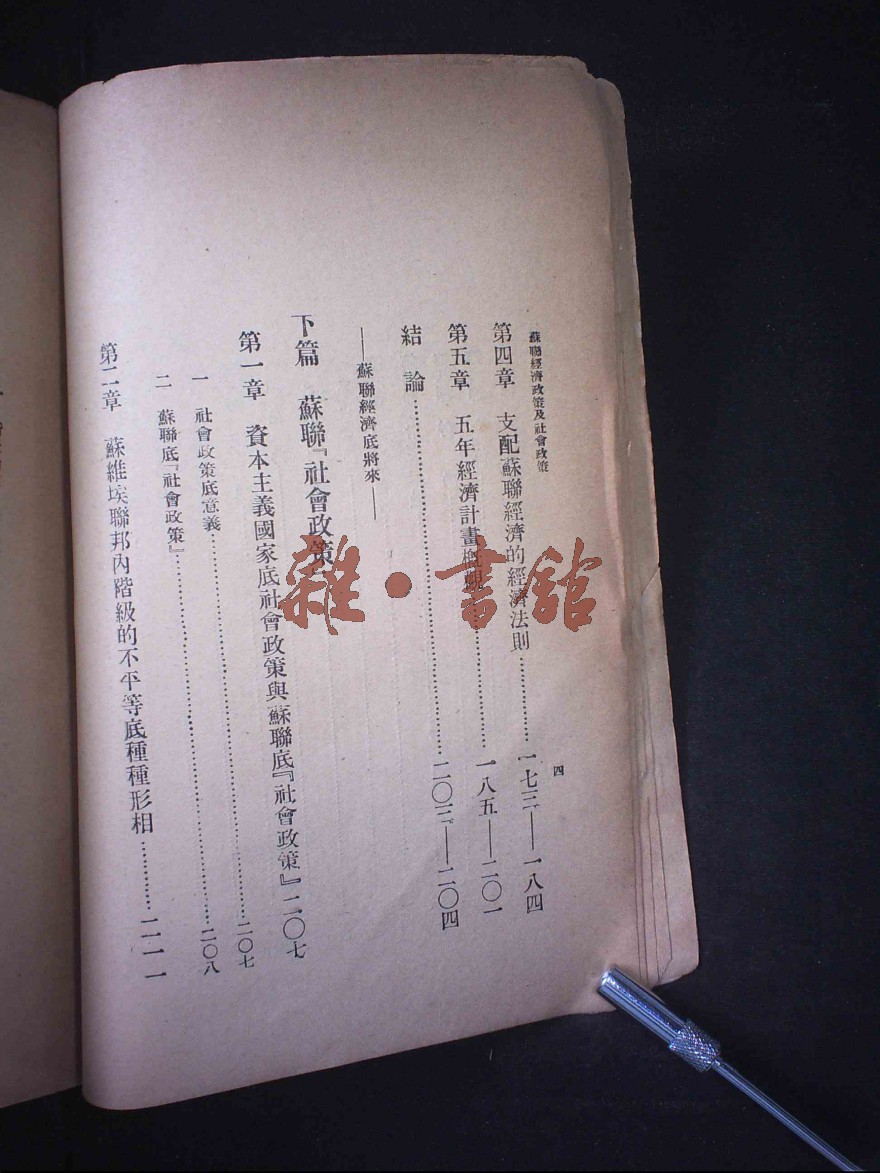 蘇聯經濟政策及社會政策
四
第四章　支配蘇聯經濟的經濟法則……………一七三——一八四
第五章　五年經濟計畫概觀……………一八五——二〇一
結　論……………二〇三——二〇四
——蘇聯經濟底將來——
下篇　蘇聯『社會政策』
第一章　資本主義國家底社會政策與蘇聯底『社會政策』二〇七
一　社會政策底意義……………二〇七
二　蘇聯底『社會政策』……………二〇八
第二章　蘇維埃聯邦內階級的不平等底種種形相……………二一一
雜·書館